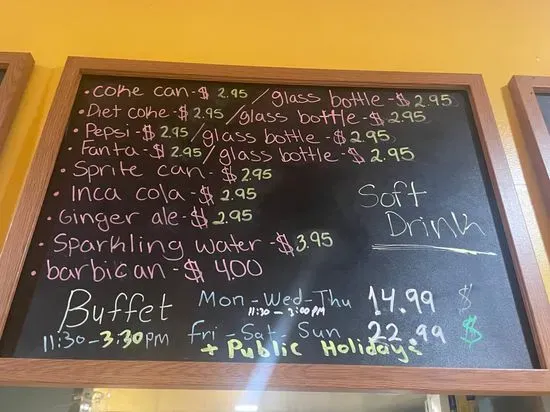 • coke can - $ 2.95 / glass bottle - $ 2.95
• Diet coke - $ 2.95 / glass bottle - $ 2.95
• Pepsi - $ 2.95 / glass bottle - $ 2.95
• Fanta - $ 2.95 / glass bottle - $ 2.95
• Sprite can - $ 2.95
• Inca cola - $ 2.95
• Ginger ale - $ 2.95
• Sparkling water - $ 3.95
• barbican - $ 4.00
Soft
Drink
Buffet
11:30 - 3:30 PM
Mon - Wed - Thu 14.99 $
11:30 - 3:00 PM
Fri - Sat - Sun 22.99 $
+ Public Holidays